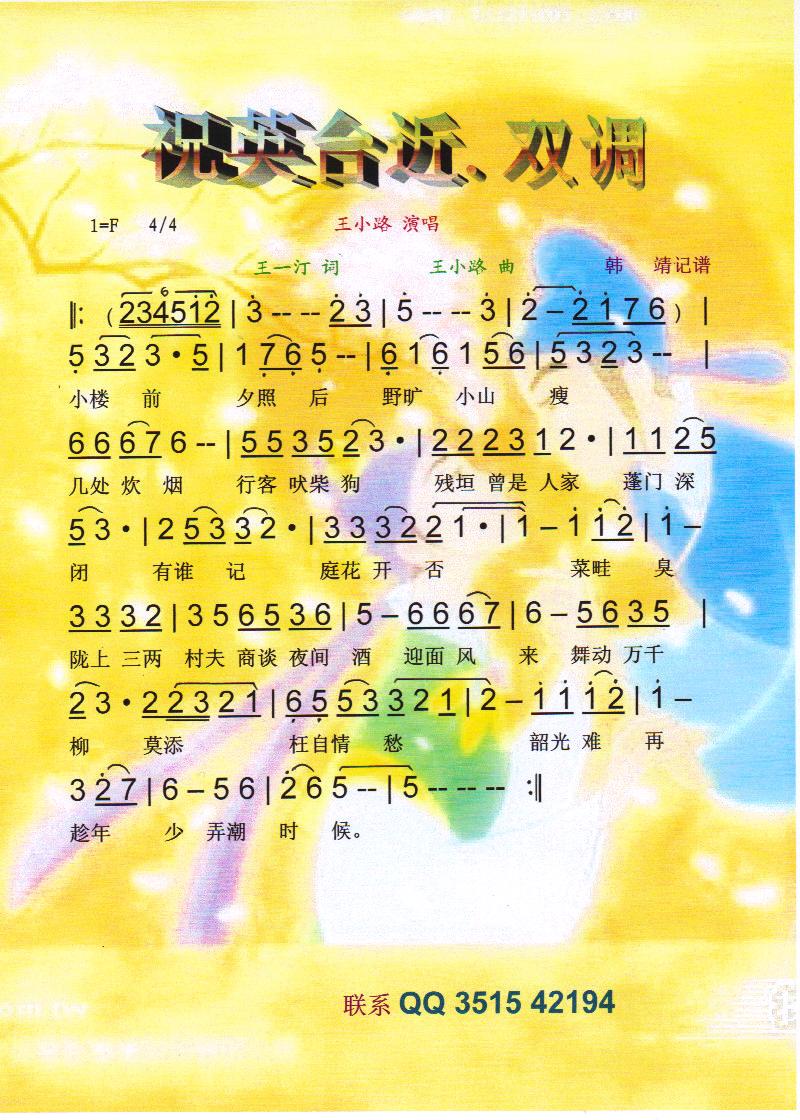 祝英台近．双调
1=F 4/4 王小路 演唱
王一汀 词 王小路 曲 韩 靖记谱
‖: ( 234512 | 3 -- -- 2 3 | 5 -- -- 3 | 2 – 2 1 7 6 ) |
5 3 2 3 • 5 | 1 7 6 5 -- | 6 1 6 1 5 6 | 5 3 2 3 -- |
小楼 前 夕照 后 野旷 小山 瘦
6 6 6 7 6 -- | 5 5 3 5 2 3 • | 2 2 2 3 1 2 • | 1 1 2 5
几处 炊 烟 行客 吠柴 狗 残垣 曾是 人家 蓬门 深
5 3 • | 2 5 3 3 2 • | 3 3 3 2 2 1 • | 1 – 1 1 2 | 1 –
闭 有谁 记 庭花 开 否 菜畦 臭
3 3 3 2 | 3 5 6 5 3 6 | 5 – 6 6 6 7 | 6 – 5 6 3 5 |
陇上 三两 村夫 商谈 夜间 酒 迎面 风 来 舞动 万千
2 3 • 2 2 3 2 1 | 6 5 5 3 3 2 1 | 2 – 1 1 1 2 | 1 –
柳 莫添 枉自情 愁 韶光 难 再
3 2 7 | 6 – 5 6 | 2 6 5 -- | 5 -- -- -- :‖
趁年 少 弄潮 时 候。
联系 QQ 3515 42194